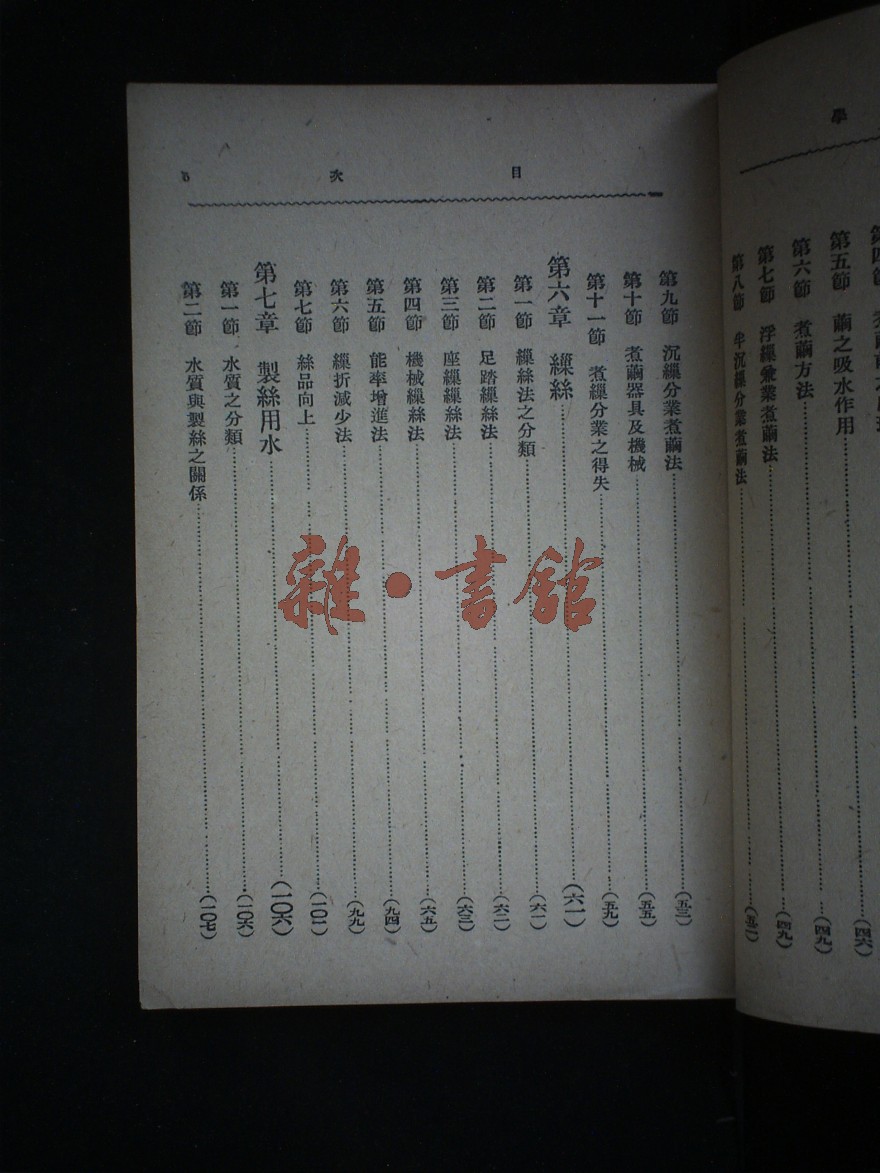 學
第五節 繭之吸水作用……(四六)
第六節 煮繭方法……(四九)
第七節 浮繅兼業煮繭法……(四九)
第八節 半沉繅分業煮繭法……(五二)
目次
第九節 沉繅分業煮繭法……(五三)
第十節 煮繭器具及機械……(五五)
第十一節 煮繅分業之得失……(五九)
第六章 繅絲……(六一)
第一節 繅絲法之分類……(六一)
第二節 足踏繅絲法……(六二)
第三節 座繅繅絲法……(六三)
第四節 機械繅絲法……(六五)
第五節 能率增進法……(九四)
第六節 繅折減少法……(九九)
第七節 絲品向上……(一〇二)
第七章 製絲用水……(一〇六)
第一節 水質之分類……(一〇六)
第二節 水質與製絲之關係……(一〇七)
雜·書館